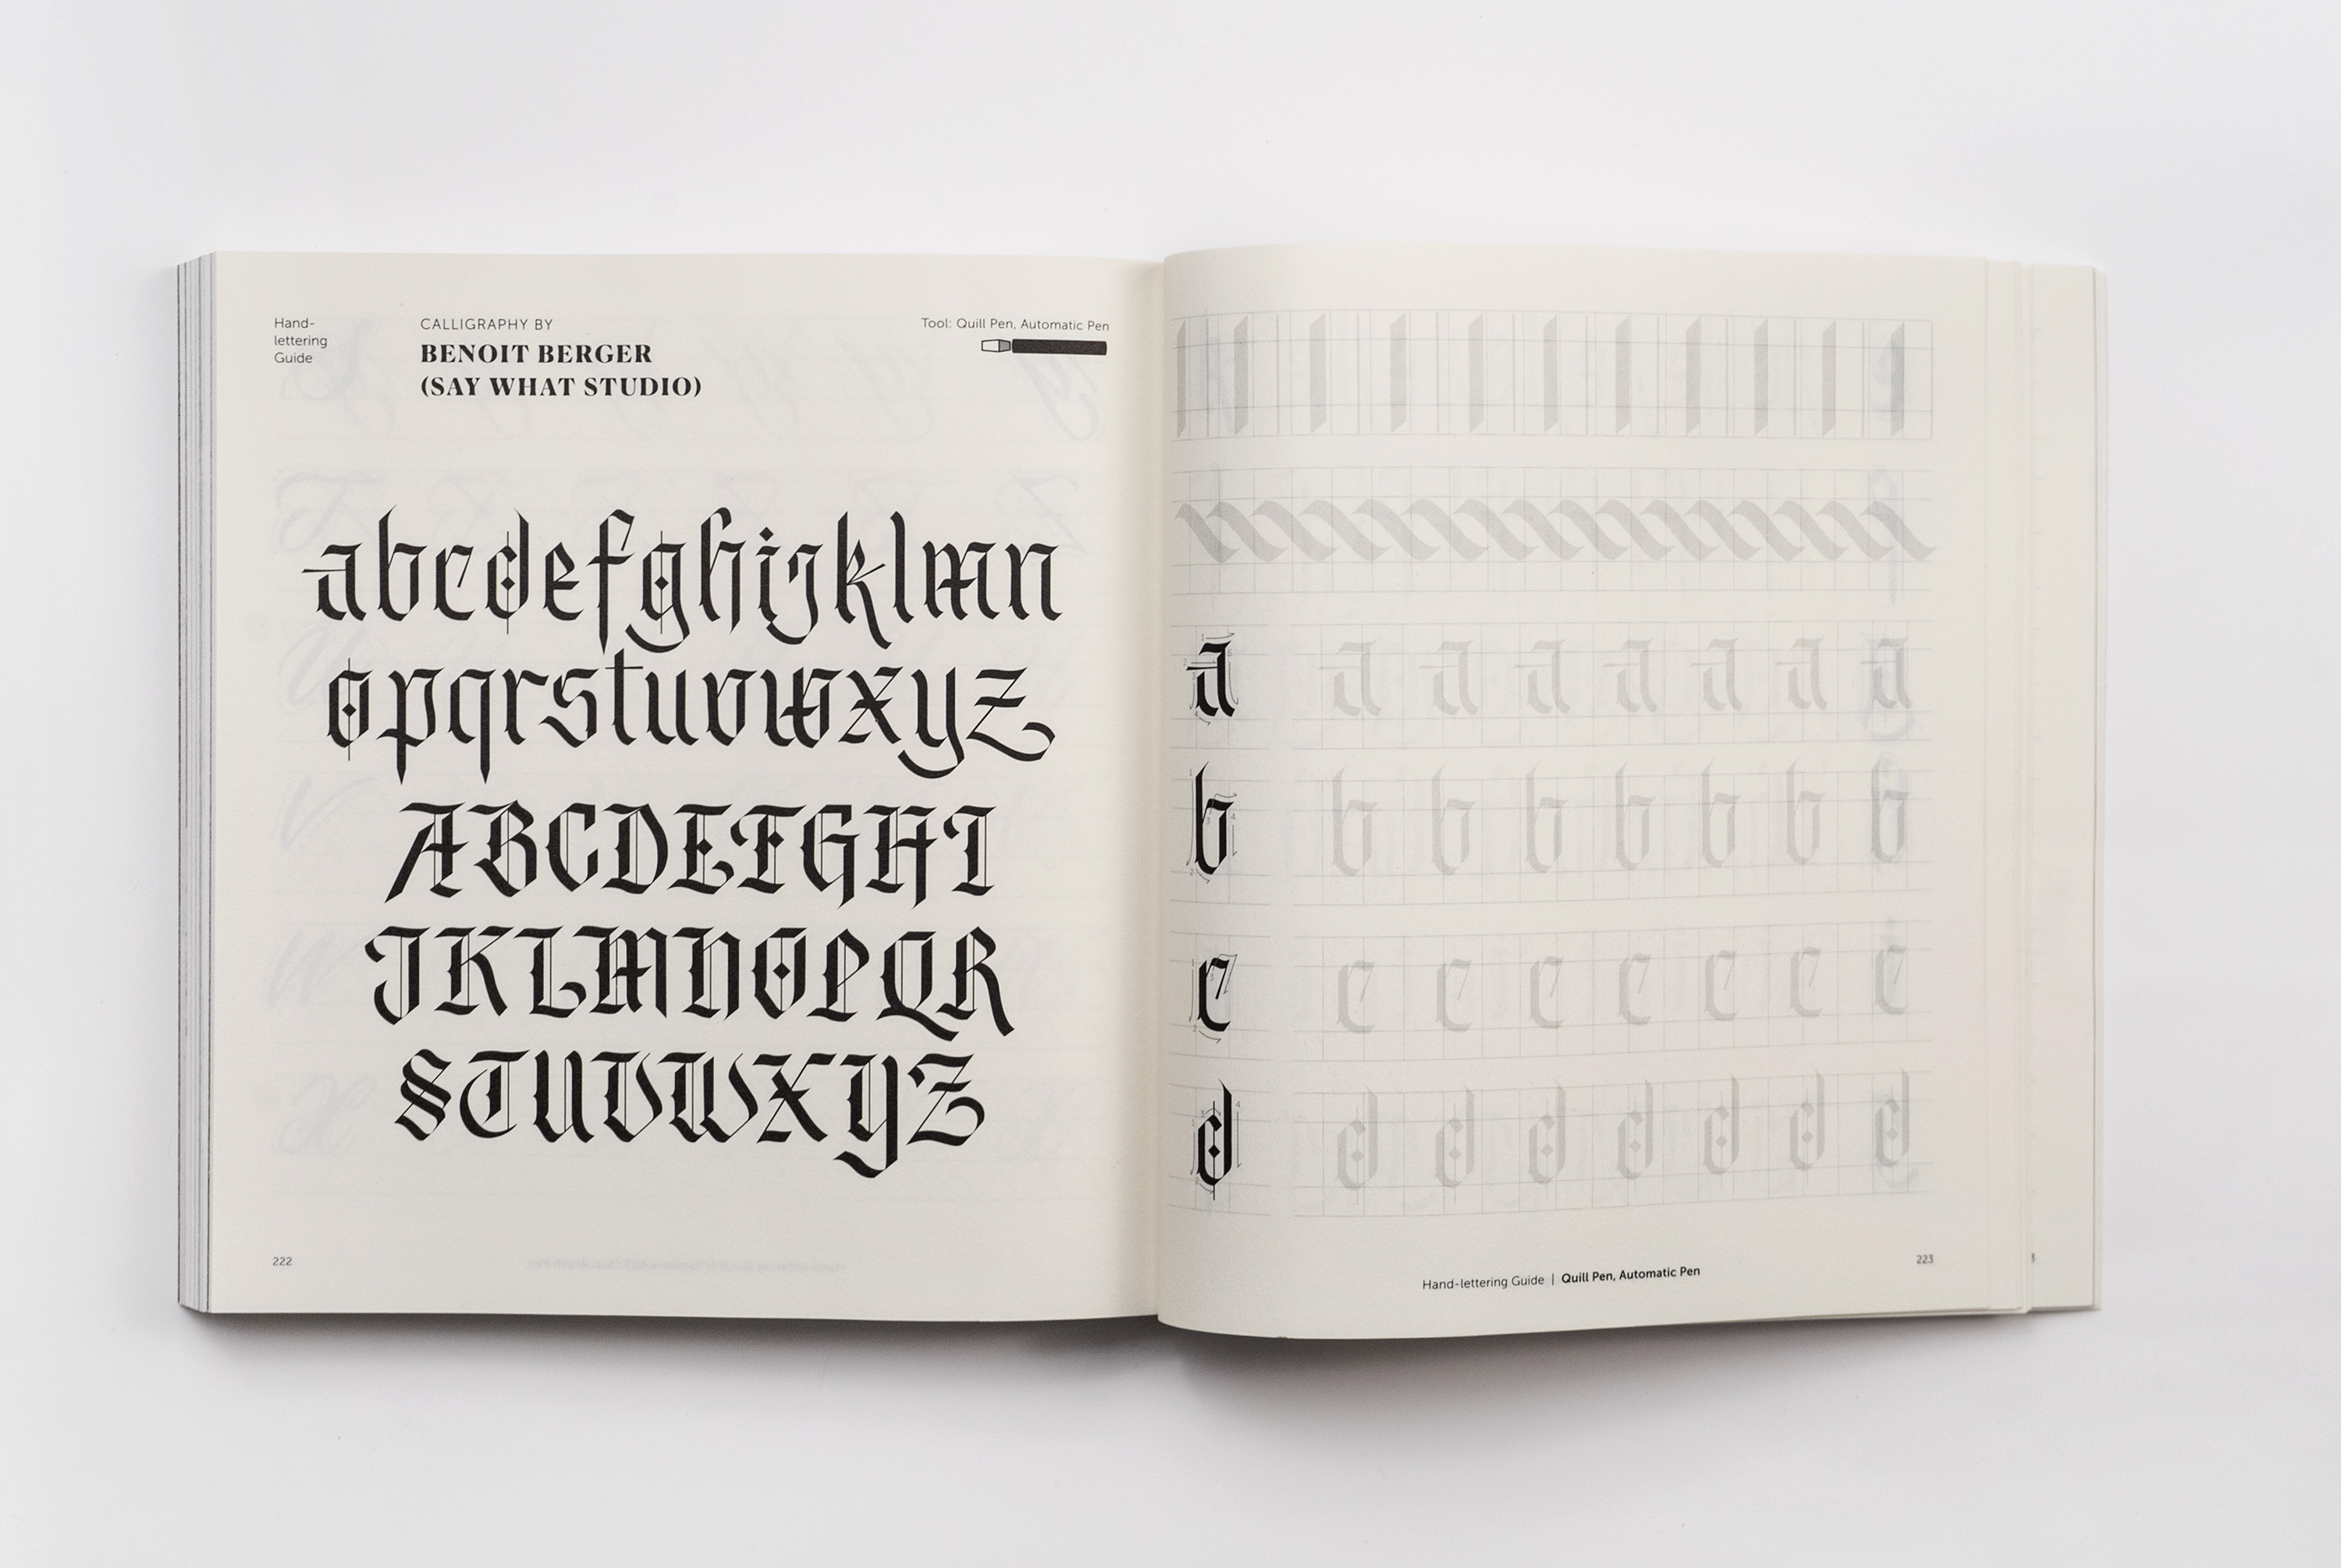 Hand-
lettering
Guide
CALLIGRAPHY BY
BENOIT BERGER
(SAY WHAT STUDIO)
Tool: Quill Pen, Automatic Pen
abcdefghijklmn
opqrstuvwxyz
ABCDEFGHI
JKLMNOPQR
STUVWXYZ
222
a a a a a a a a
b b b b b b b b
c c c c c c c c
d d d d d d d d
Hand-lettering Guide | Quill Pen, Automatic Pen
223